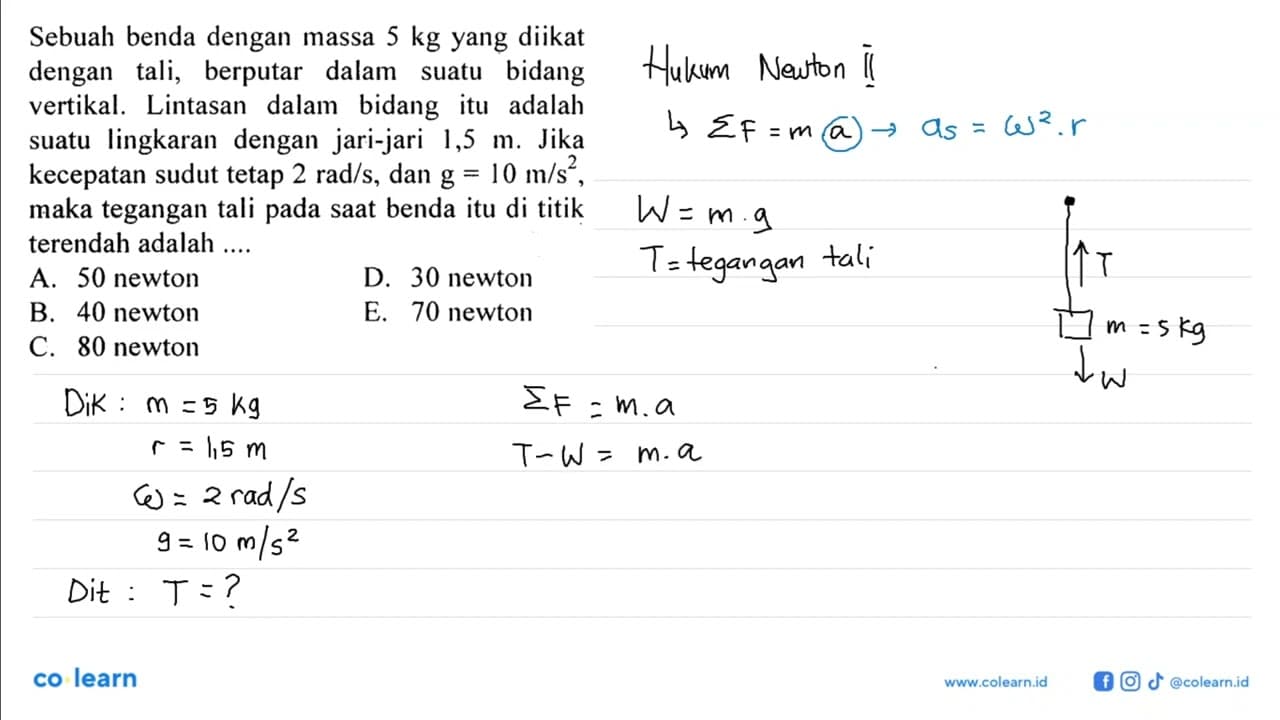 Sebuah benda dengan massa 5 kg yang diikat
dengan tali, berputar dalam suatu bidang
vertikal. Lintasan dalam bidang itu adalah
suatu lingkaran dengan jari-jari 1,5 m. Jika
kecepatan sudut tetap 2 rad/s, dan g = 10 m/s²,
maka tegangan tali pada saat benda itu di titik
terendah adalah ....
A. 50 newton
B. 40 newton
C. 80 newton
D. 30 newton
E. 70 newton
Hukum Newton II
↳ ΣF = m a → as = ω². r
W = m . g
T = tegangan tali
T
m = 5 kg
W
Dik : m = 5 kg
r = 1,5 m
ω = 2 rad/s
g = 10 m/s²
Dit : T = ?
ΣF = m. a
T - W = m. a
co learn
www.colearn.id
@colearn.id